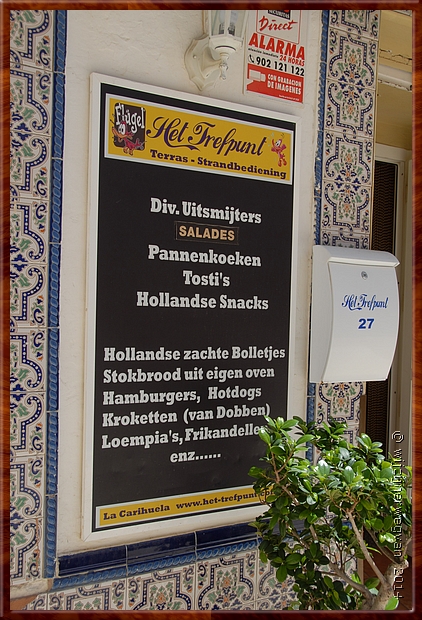 Direct
ALARMA
24 HORAS
902 121 122
CON GRABACION
DE IMAGENES
Flügel
Het Trefpunt
Terras - Strandbediening
Div. Uitsmijters
SALADES
Pannenkoeken
Tosti's
Hollandse Snacks
Het Trefpunt
27
Hollandse zachte Bolletjes
Stokbrood uit eigen oven
Hamburgers, Hotdogs
Kroketten (van Dobben)
Loempia's, Frikandelle
enz......
La Carihuela www.het-trefpunt.co